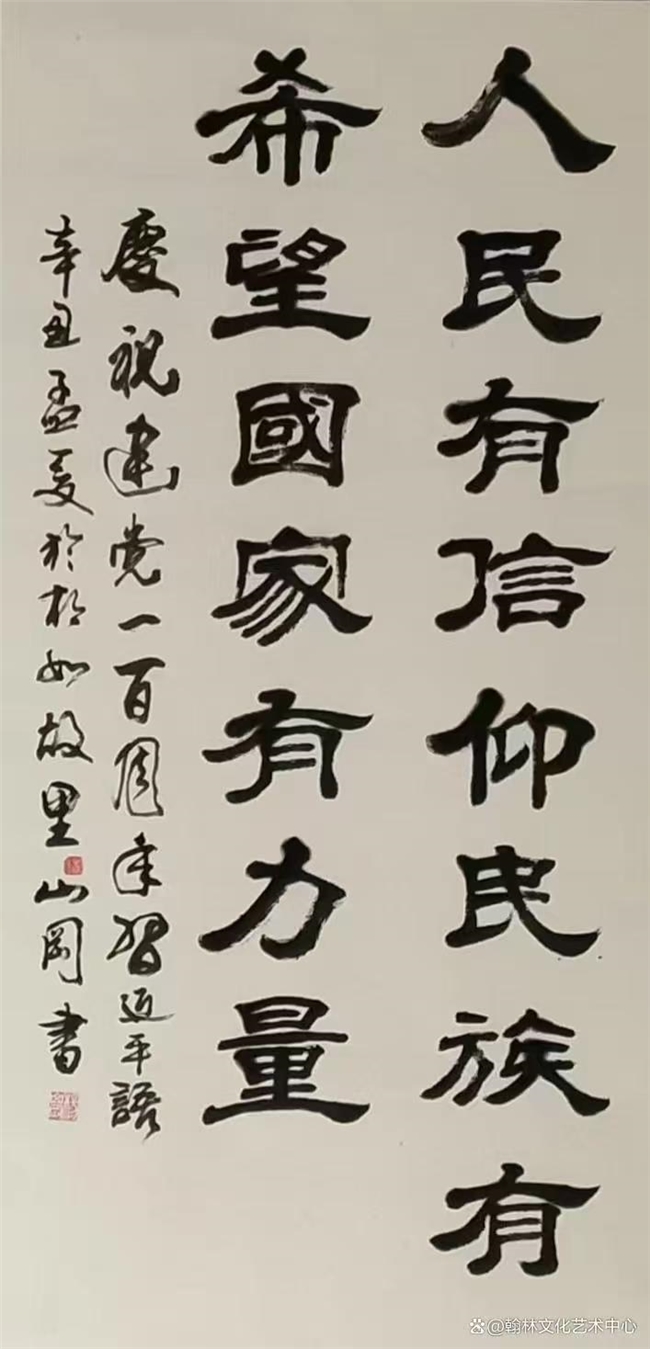 人民有信仰民族有
希望國家有力量
慶祝建党一百周年習近平語
辛丑孟夏於相如故里山岡書
@翰林文化艺术中心